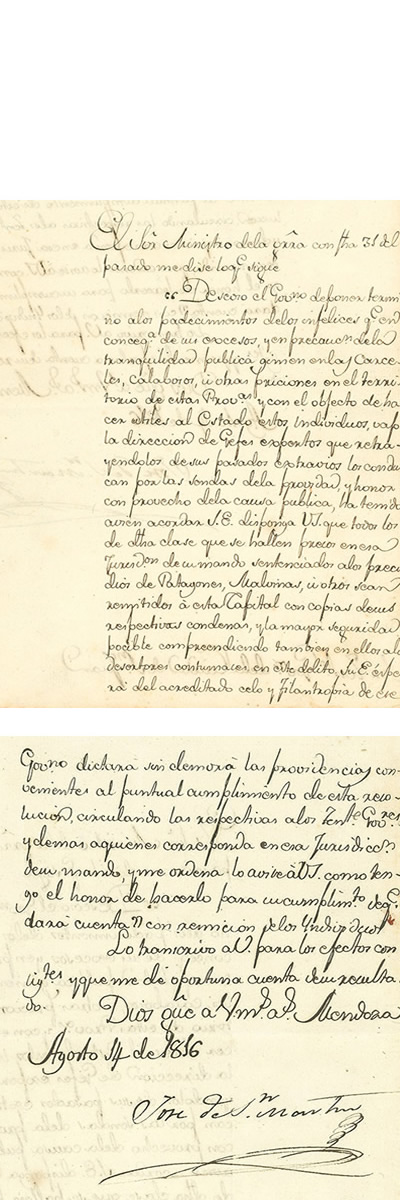 El Sôr Ministro dela grrâ con fha 31 del
pasado me dise loq.e sigue
"Deseoso el Gov.no deponer termi
no alos padecimientos delos infelices q.e en
conseq.a de sus excesos, y en precauc.n dela
tranquilidad publica gimen en las Carce-
les, calabosos, ú otras priciones en el terri-
torio de estas Prov.as y con el objecto de ha
cer utiles al Estado estos individuos, vajo
la direccion de Gefes expertos que retra-
yendolos de sus pasados extravios los condu
can por las sendas dela providad, y honor
con provecho dela causa publica, ha tenido
avien acordar S.E. disponga VS. que todos los
de dha clase que se hallen presos en esa
Jurisd.on de su mando sentenciados alos presi
dios de Patagones, Malvinas, ú otros sean
remitidos à esta Capital con copias desus
respectivas condenas, y la mayor seguridad
posible comprendiendo tambien en ellos alos
desertores contumaces en este delito. Su E. espe
ra del acreditado celo y filantropia de ese
Gov.no dictará sin demora las providencias con-
venientes al puntual cumplimiento de esta reso-
lucion, circulando las respectivas alos Ten.tes Gov.res
y demas aquienes corresponda en esa Jurisdic.n
desu mando, y me ordena lo avise à VS. como ten-
go el honor de hacerlo para su cumplim.to deq.e
dará cuenta" con remicion delos Individuos
Lo transcrivo aV. para los efectos con
sig.tes y que me dé oportuna cuenta desu resulta
do. Dios gûe a V. m.s a.s Mendoza
Agosto 14 de 1816
Jose de S.n Martin